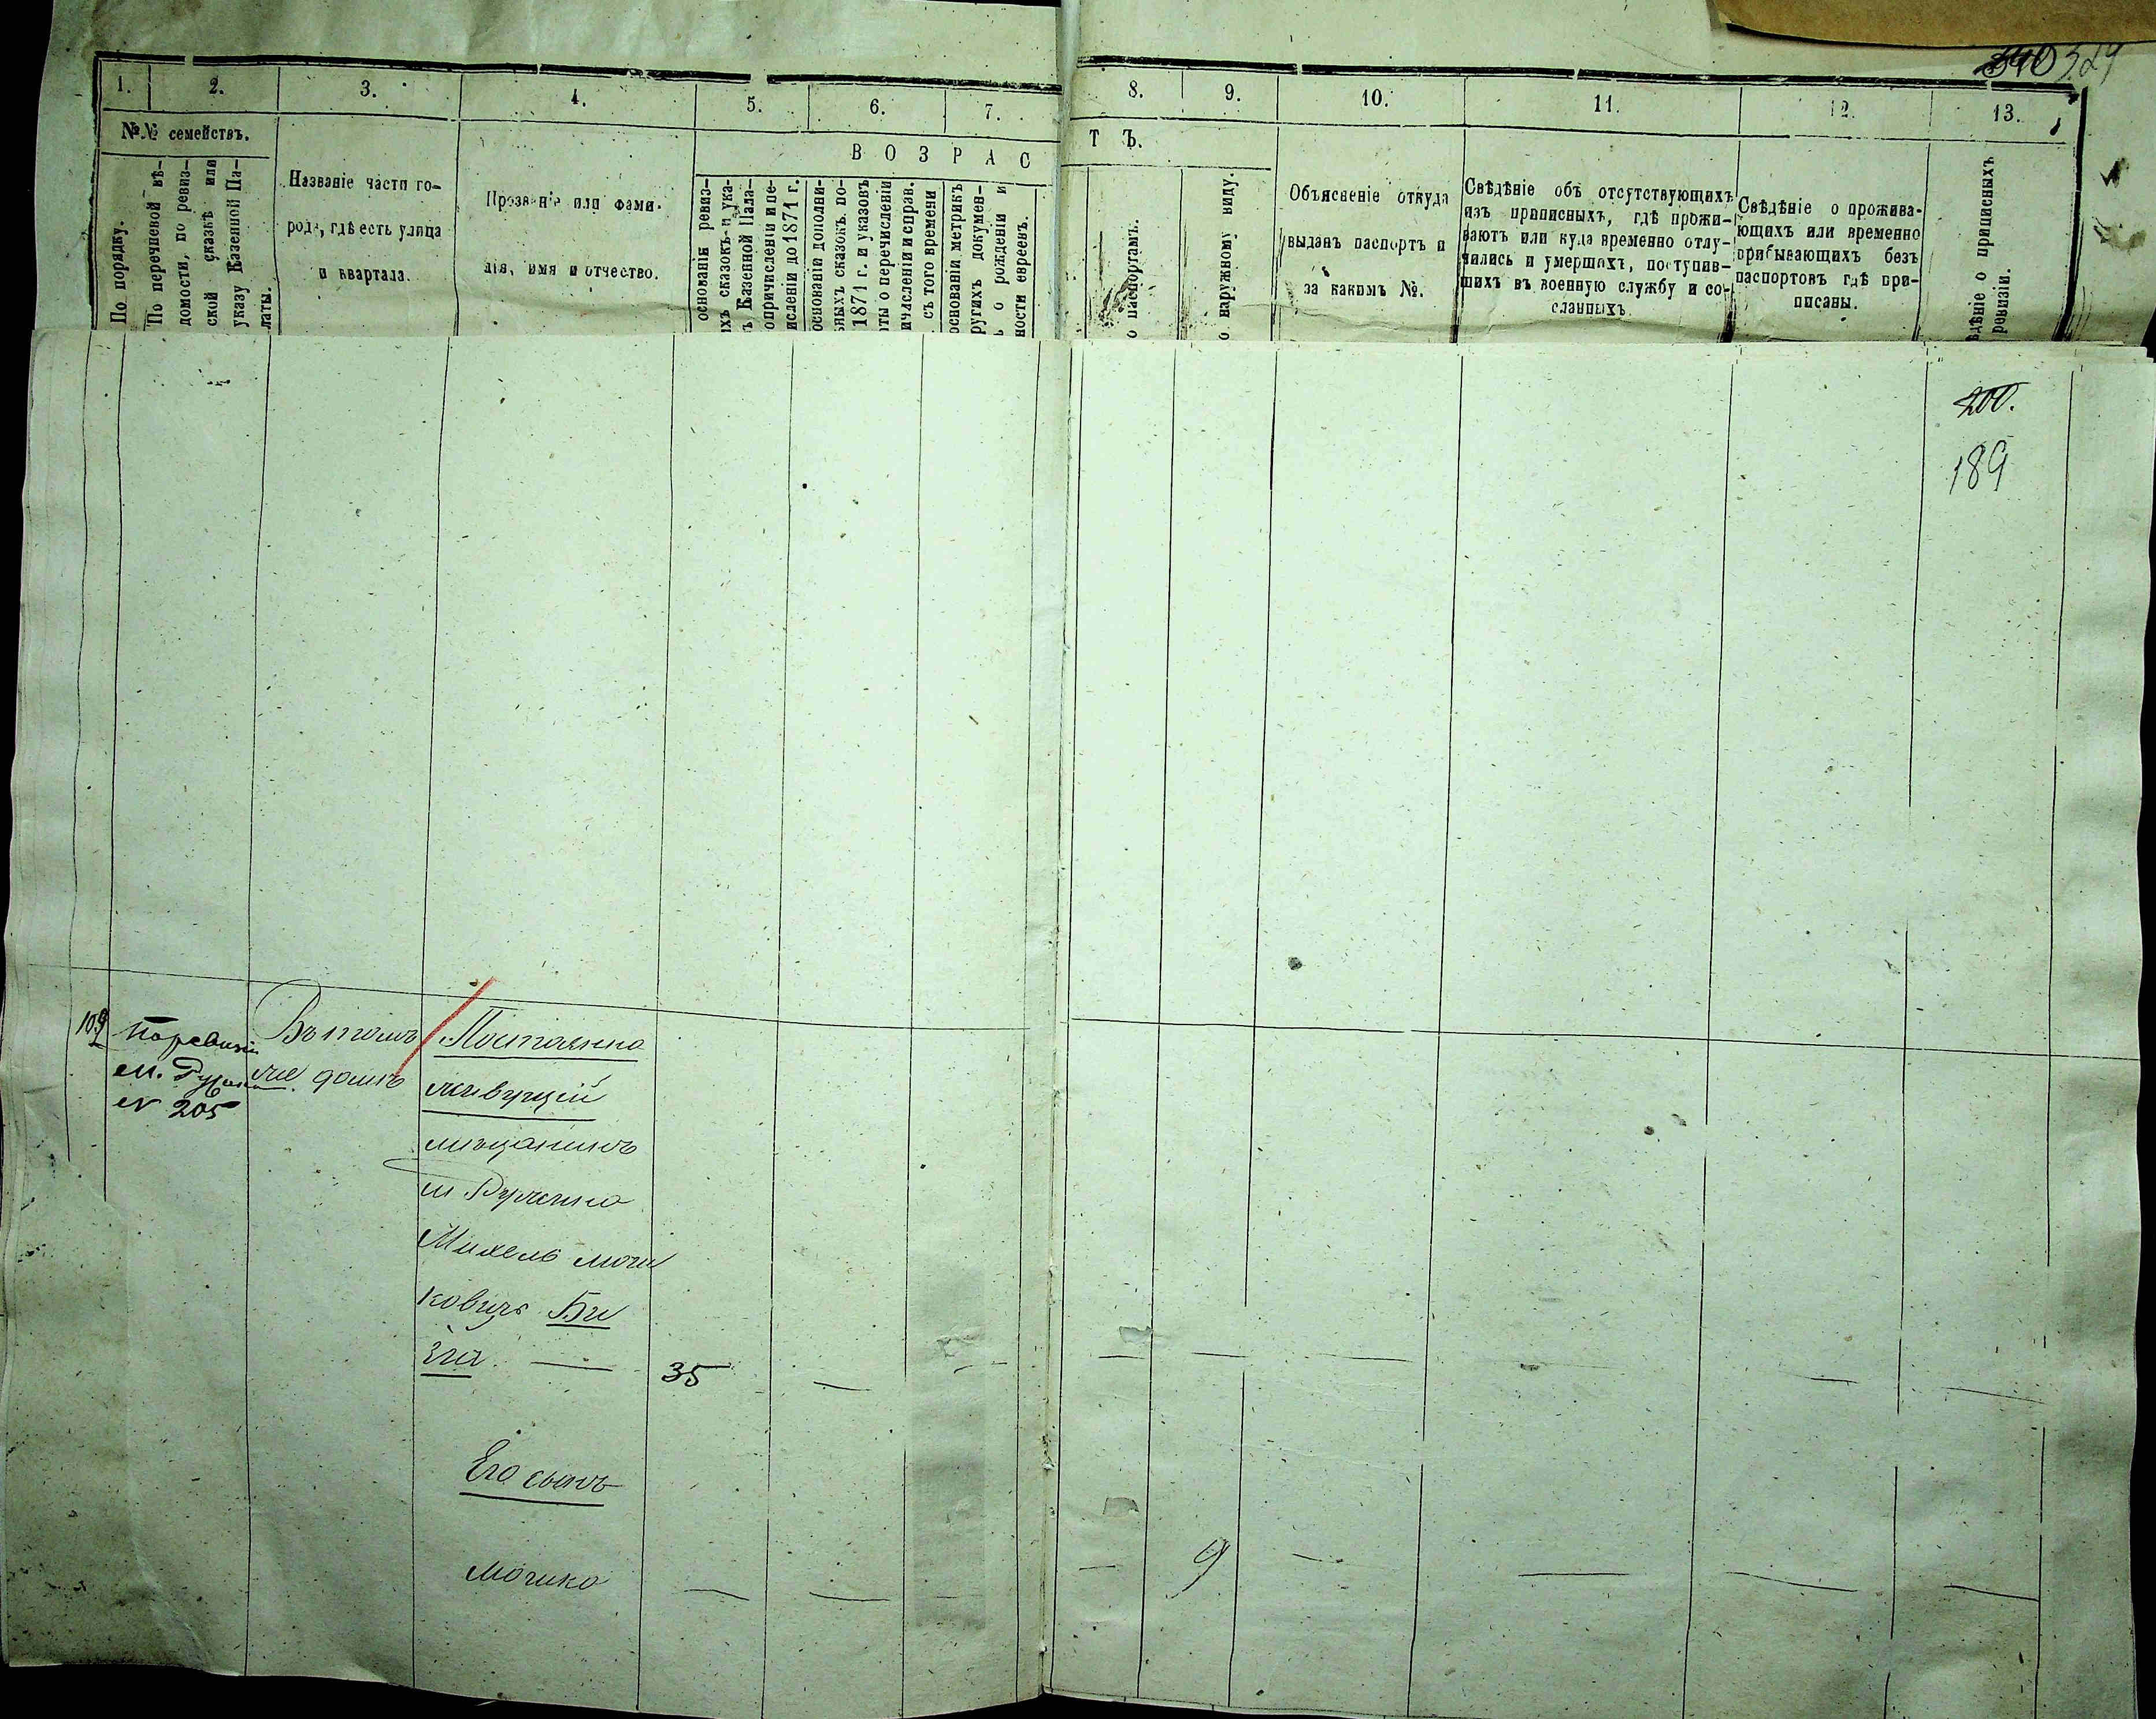 340 329
1. 2. 3. 4. 5. 6. 7. 8. 9. 10. 11. 12. 13.
№№ семействъ.
В О З Р А С Т Ъ.
По порядку.
По перечневой вѣ-
домости, по ревиз-
ской сказкѣ или
указу Казенной Па-
латы.
Названіе части го-
рода, гдѣ есть улица
и квартала.
Прозваніе или фами-
лія, имя и отчество.
основанія ревиз-
ихъ сказокъ и ука-
ъ Казенной Пала-
опричисленіи и пе-
исленіи до 1871 г.
основаніи дополни-
ьныхъ сказокъ по-
1871 г. и указовъ
ты о перечисленіи
ичисленіи и справ.
съ того времени
основаніи метрикъ
ругихъ докумен-
ъ о рожденіи и
ности евреевъ.
о паспортамъ.
о наружному виду.
Объясненіе откуда
выданъ паспортъ и
за какимъ №.
Свѣдѣніе объ отсутствующихъ
изъ приписныхъ, гдѣ прожи-
ваютъ или куда временно отлу-
чились и умершихъ, поступив-
шихъ въ военную службу и со-
сланныхъ
Свѣдѣніе о прожива-
ющихъ или временно
прибывающихъ безъ
паспортовъ гдѣ при-
писаны.
ѣдѣніе о приписныхъ
ревизіи.
200.
189
109
По ревизіи
м.
№ 205
Въ томъ
же домѣ
Постоянно
живущій
мѣщанинъ
м.
Михель Мош
ковичъ Би
35
Его сынъ
Мошко
9